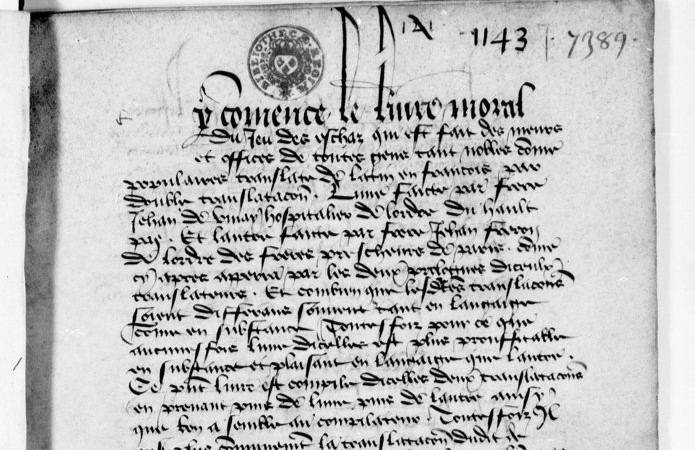 1143 7389.
BIBLIOTHECÆ REGIÆ
y comence le livre moral
Du Jeu des eschaz qui est fait des meurs
et offices de toutes gens tant nobles come
populaires translate de latin en francois par
double translatacon. Lune faicte par frere
Jehan de vinay hospitalier de lordre du hault
pas. Et lautre faicte par frere Jehan feron
de lordre des freres prescheurs de paris. come
cy apres apperra par les deux prologues diceulx
translateurs. Et combien que lesdes translacons
soient differans souvent tant en langaige
come en substance Toutesfoiz pour ce que
aucunesfois lune dicelles est plus prouffitable
en substance et plaisant en langaige que lautre.
Ce pnt livre est compile dicelles deux translatacons
en prenant pme de lune pme de lautre ainsy
que bon a semble au compilateur. Toutesfoiz
est plus la translatacon dudit de